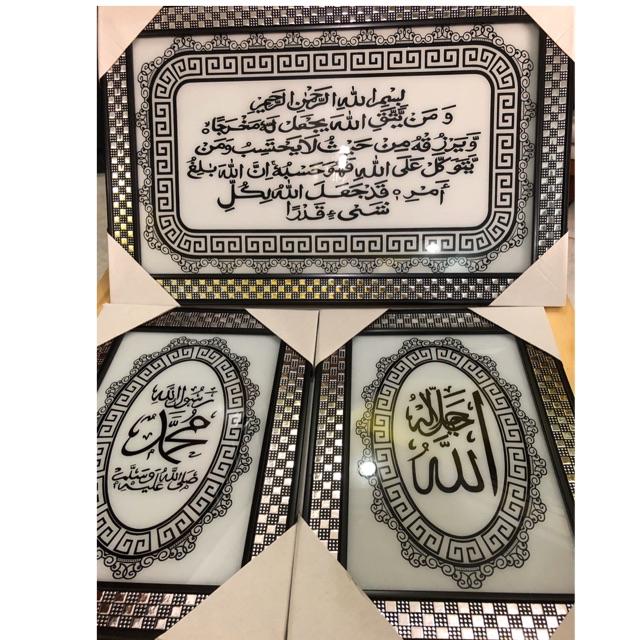 بسم الله الرحمن الرحيم
وَمَنْ يَتَّقِ اللهَ يَجْعَل لَهُ مَخْرَجًا
وَّيَرْزُقْهُ مِنْ حَيْثُ لَا يَحْتَسِبُ وَمَن
يَّتَوَكَّلْ عَلَى اللهِ فَهُوَ حَسْبُهُ إِنَّ اللهَ بَالِغُ
أَمْرِهِ قَدْ جَعَلَ اللهُ لِكُلِّ
شَىْءٍ قَدْرًا
رسول الله
محمد
صلى الله عليه وسلم
جل جلاله
الله